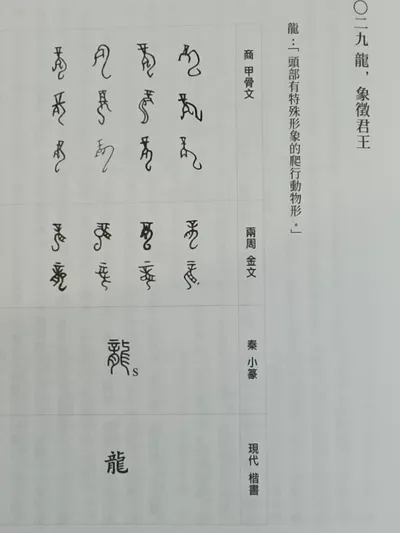 〇二九 龍，象徵君王
龍：「頭部有特殊形象的爬行動物形。」
商 甲骨文
兩周 金文
秦 小篆
龍 s
現代 楷書
龍